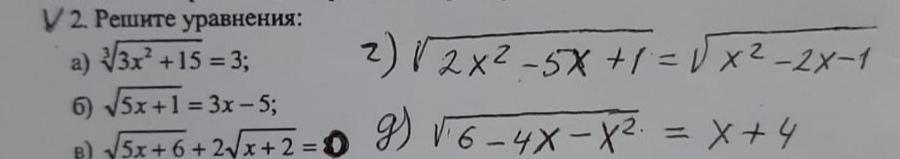 √ 2. Решите уравнения:
а) ∛(3x² + 15) = 3;
б) √(5x + 1) = 3x − 5;
в) √(5x + 6) + 2√(x + 2) = 0
г) √(2x² − 5x + 1) = √(x² − 2x − 1)
д) √(6 − 4x − x²) = x + 4